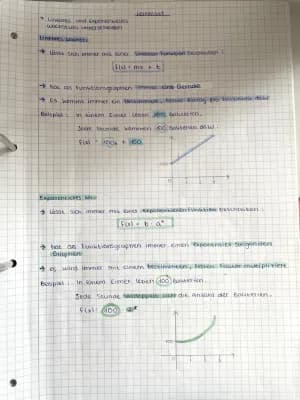 Lernzettel
* Lineares und exponentielles
Wachstum unterscheiden
Lineares Wachs.:
→ lässt sich immer mit einer linearen Funktion beschreiben :
f(x) = mx + b
→ hat als Funktionsgraphen immer eine Gerade
→ Es kommt immer ein bestimmter, fester Betrag pro Zeiteinheit dazu
Beispiel : In einem Eimer leben 100 Bakterien.
Jede Stunde kommen 100 Bakterien dazu.
f(x) = 100x + 100
Exponentielles Wa.:
→ lässt sich immer mit einer exponentiellen Funktion beschreiben :
f(x) = b · aˣ
→ hat als Funktionsgraphen immer einen exponentiell steigenden
Graphen
→ es wird immer mit einem bestimmten, festen Faktor multipliziert
Beispiel : In einem Eimer leben 100 Bakterien.
Jede Stunde verdoppelt sich die Anzahl der Bakterien.
f(x) = 100